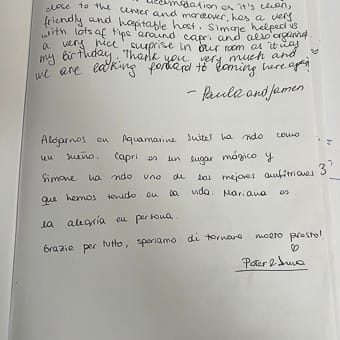 close to the center and moreover, has a very
friendly and hospitable host. Simone helped us
with lots of tips around capri and also organised
a very nice surprise in our room as it was
my birthday. Thank you very much and
we are looking forward to coming here again
- Paula and James
Alojarnos en Aquamarine Suites ha sido como
un sueño. Capri es un lugar mágico y
Simone ha sido uno de los mejores anfitriones
que hemos tenido en la vida. Mariana es
la alegría en persona.
Grazie per tutto, speriamo di tornare molto presto!
Peter &